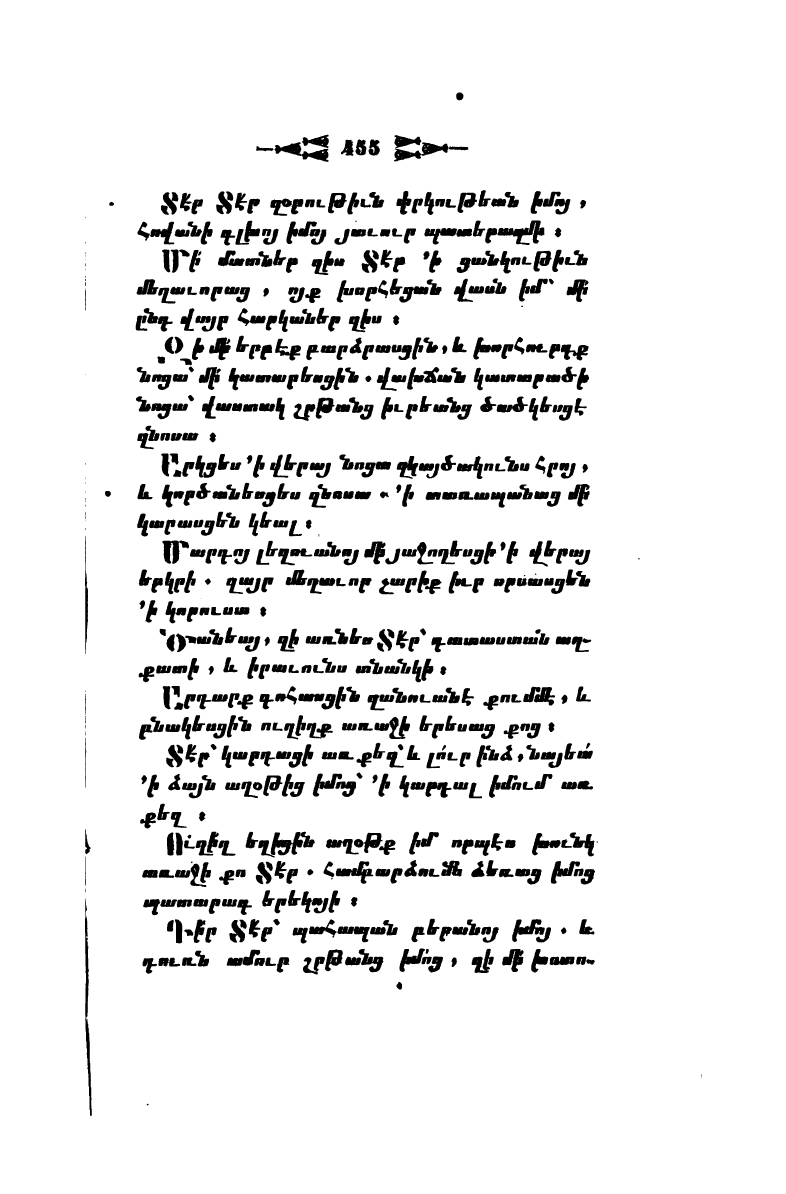 455
Տէր Տէր զօրութիւն փրկութեան իմոյ ,
Հովանի գլխոյ իմոյ յաւուր պատերազմի ։
Մի՛ մատներ զիս Տէր ՚ի ցանկութիւն
մեղաւորաց , ոյք խորհեցան վասն իմ՝ մի
ընդ վայր հարկաներ զիս ։
Զի մի երբէք բարձրասցին , և խորհուրդք
նոցա՝ մի կատարեսցին . վախճան կատարածի
նոցա՝ վաստակ շրթանց իւրեանց ծածկեսցէ
զնոսա ։
Արկցես ՚ի վերայ նոցա զկայծակունս հրոյ ,
և կործանեսցես զնոսա . ՚ի տառապանաց մի
կարասցեն կեալ ։
Մարդոյ լեզուանոյ մի յաջողեսցի ՚ի վերայ
երկրի . զայր մեղաւոր չարիք իւր որսասցեն
՚ի կորուստ ։
Ծանեայ , զի առնես Տէր՝ դատաստան աղ-
քատի , և իրաւունս տնանկի ։
Արդարք գոհասցին զանուանէ քումմէ , և
բնակեսցին ուղիղք առաջի երեսաց քոց ։
Տէր՝ կարդացի առ քեզ՝ և լուր ինձ , նայեա՛
՚ի ձայն աղօթից իմոց՝ ՚ի կարդալ իմում առ
քեզ ։
Ուղիղ եղիցին աղօթք իմ որպէս խունկ
առաջի քո Տէր . համբարձումն ձեռաց իմոց
պատարագ երեկոյի ։
Դի՛ր Տէր՝ պահապան բերանոյ իմոյ . և
դուռն ամուր շրթանց իմոց , զի մի խոտո-